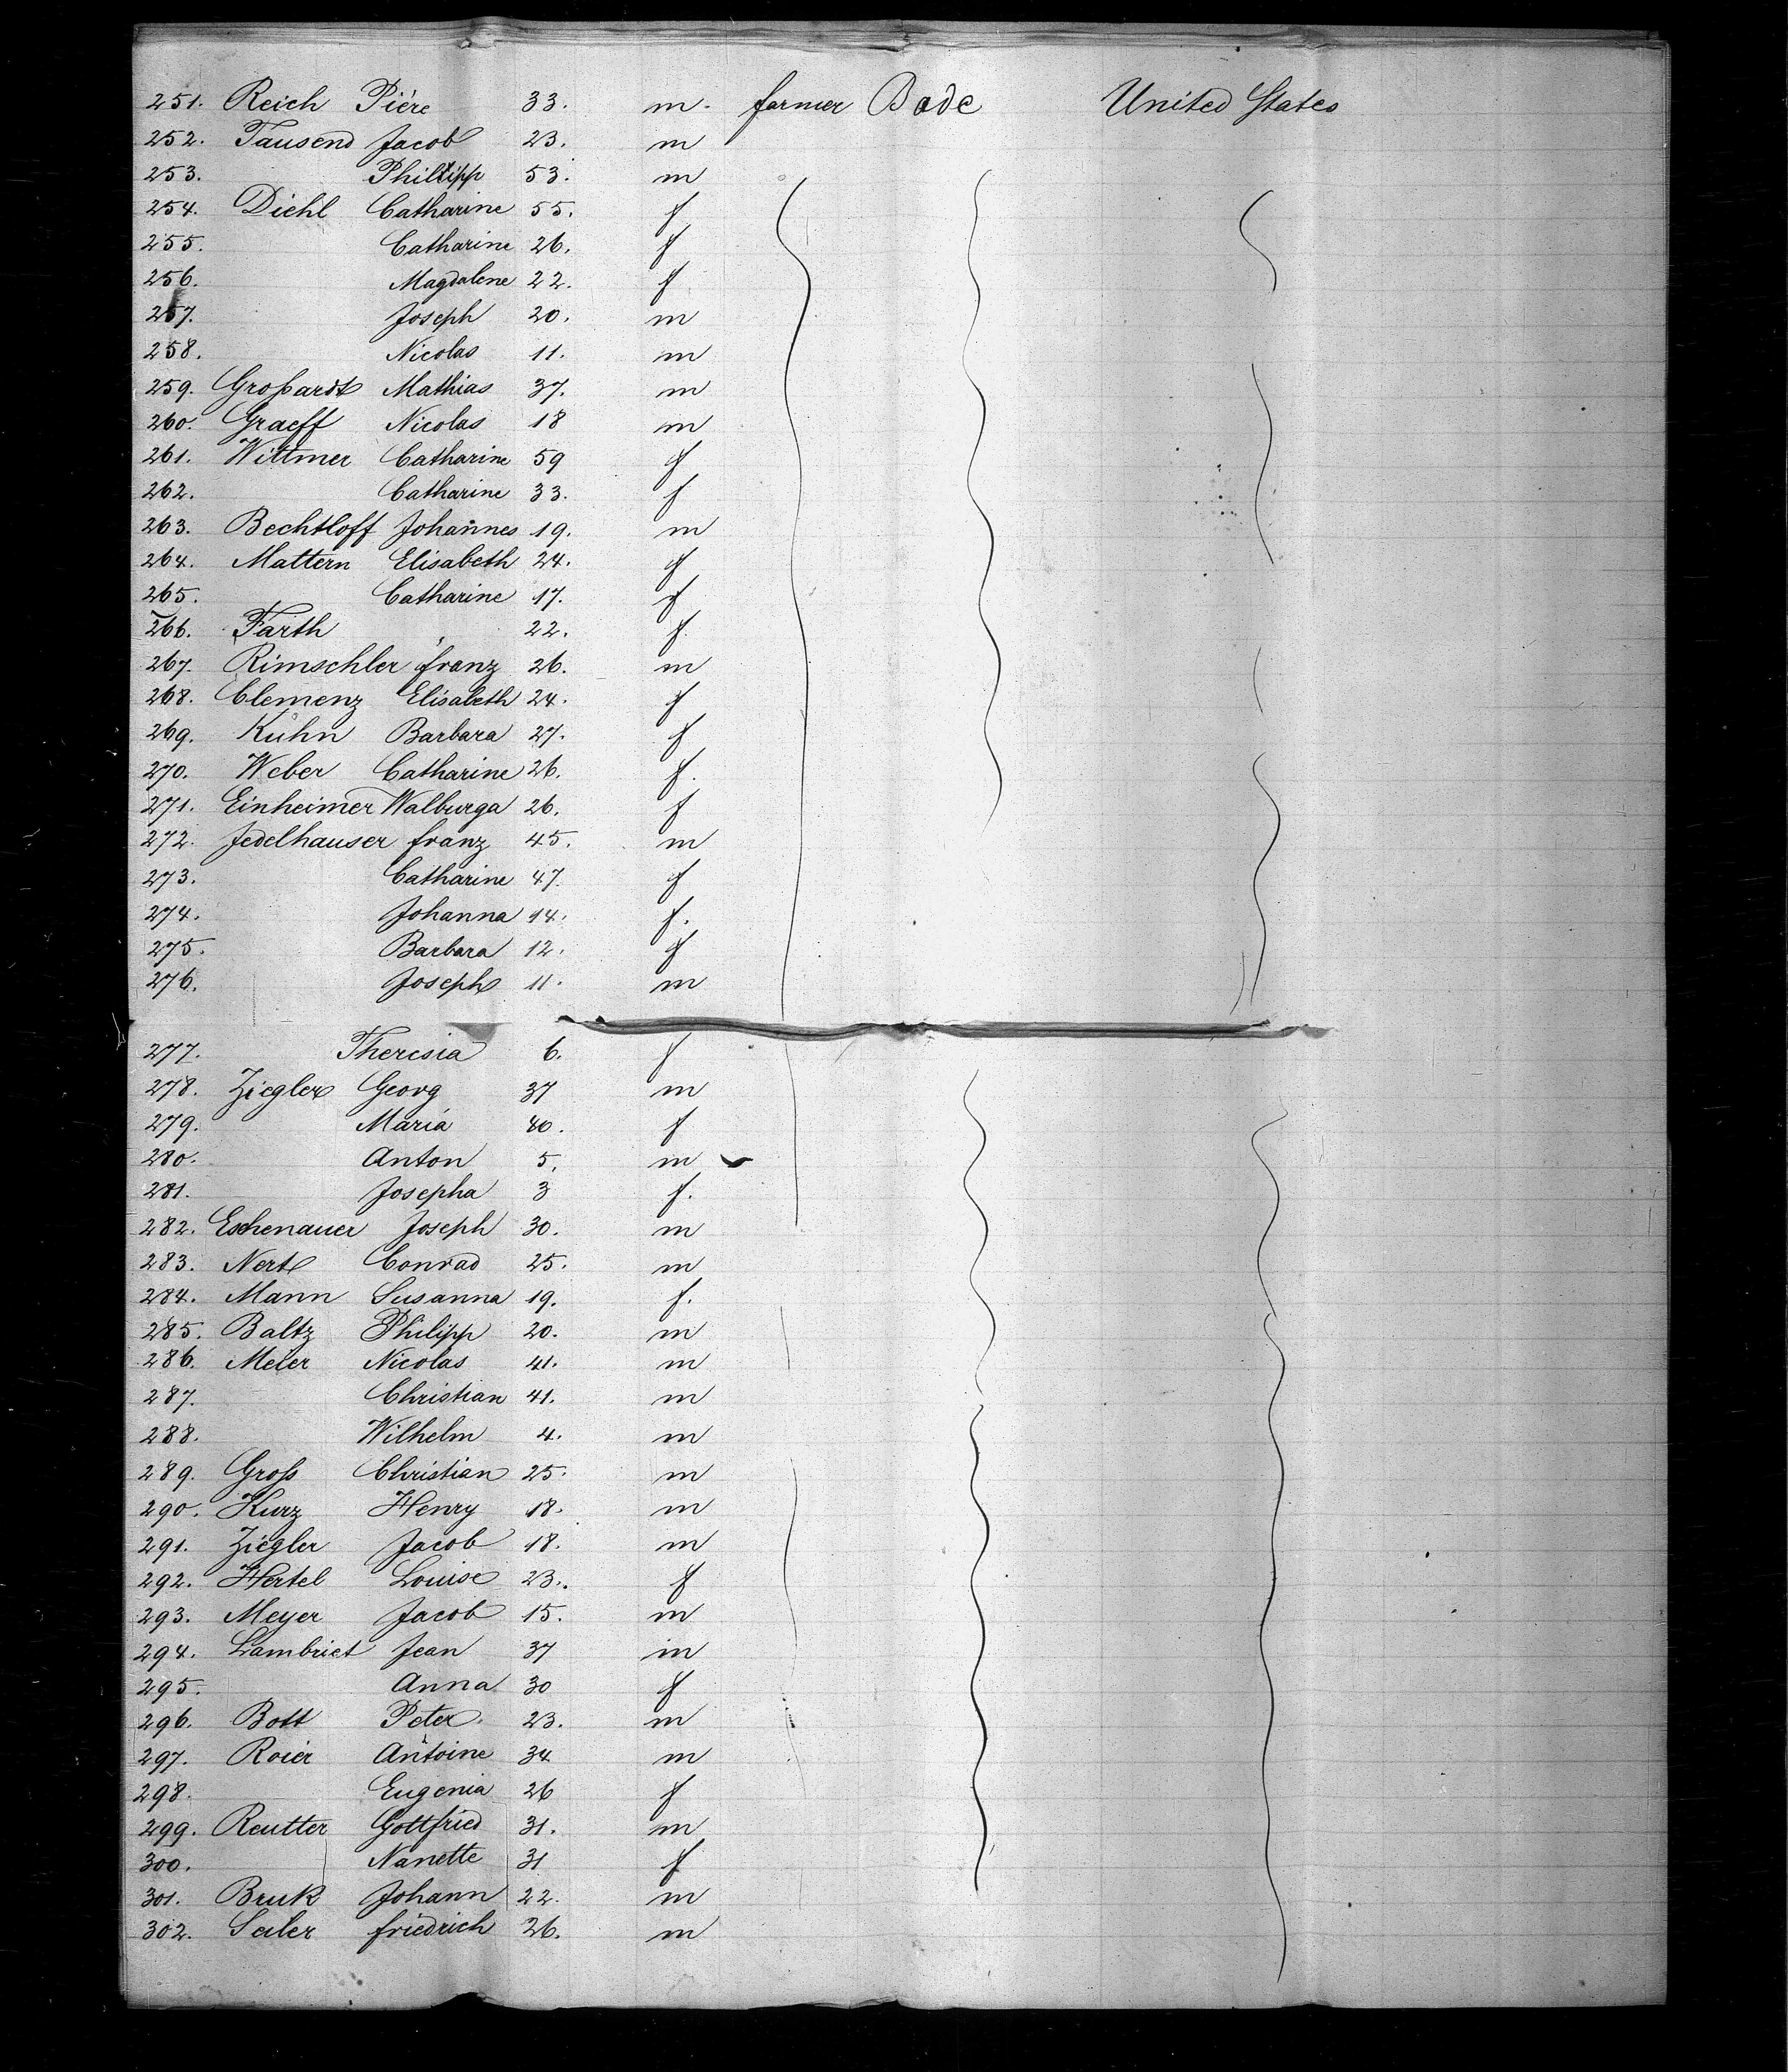 251. Reich Piére 33. m. farmer Bade United States
252. Tausend Jacob 23. m
253. Phillipp 53. m
254. Diehl Catharine 55. f
255. Catharine 26. f
256. Magdalene 22. f
257. Joseph 20. m
258. Nicolas 11. m
259. Großardt Mathias 37. m
260. Graeff Nicolas 18 m
261. Wittmer Catharine 59 f
262. Catharine 33. f
263. Bechtloff Johannes 19. m
264. Mattern Elisabeth 24. f
265. Catharine 17. f
266. Farth " 22. f.
267. Rimschler franz 26. m
268. Clemenz Elisabeth 24. f
269. Kuhn Barbara 27. f
270. Weber Catharine 26. f.
271. Einheimer Walburga 26. f
272. Jedelhauser franz 45. m
273. Catharine 47. f
274. Johanna 14. f.
275. Barbara 12. f
276. Joseph 11. m
277. Theresia 6. f
278. Ziegler Georg 37 m
279. Maria 40. f
280. Anton 5. m
281. Josepha 3 f.
282. Eschenauer Joseph 30. m
283. Nert Conrad 25. m
284. Mann Susanna 19. f.
285. Baltz Philipp 20. m
286. Meier Nicolas 41. m
287. Christian 41. m
288. Wilhelm 4. m
289. Groß Christian 25. m
290. Kurz Henry 18. m
291. Ziegler Jacob 18. m
292. Hertel Louise 23. f
293. Meyer Jacob 15. m
294. Lambriet Jean 37 m
295. Anna 30 f
296. Bott Peter 23. m
297. Roiér Antoine 34 m
298. Eugenia 26 f
299. Reutter Gottfried 31. m
300. Nanette 31 f
301. Bruk Johann 22. m
302. Seiler friedrich 26. m